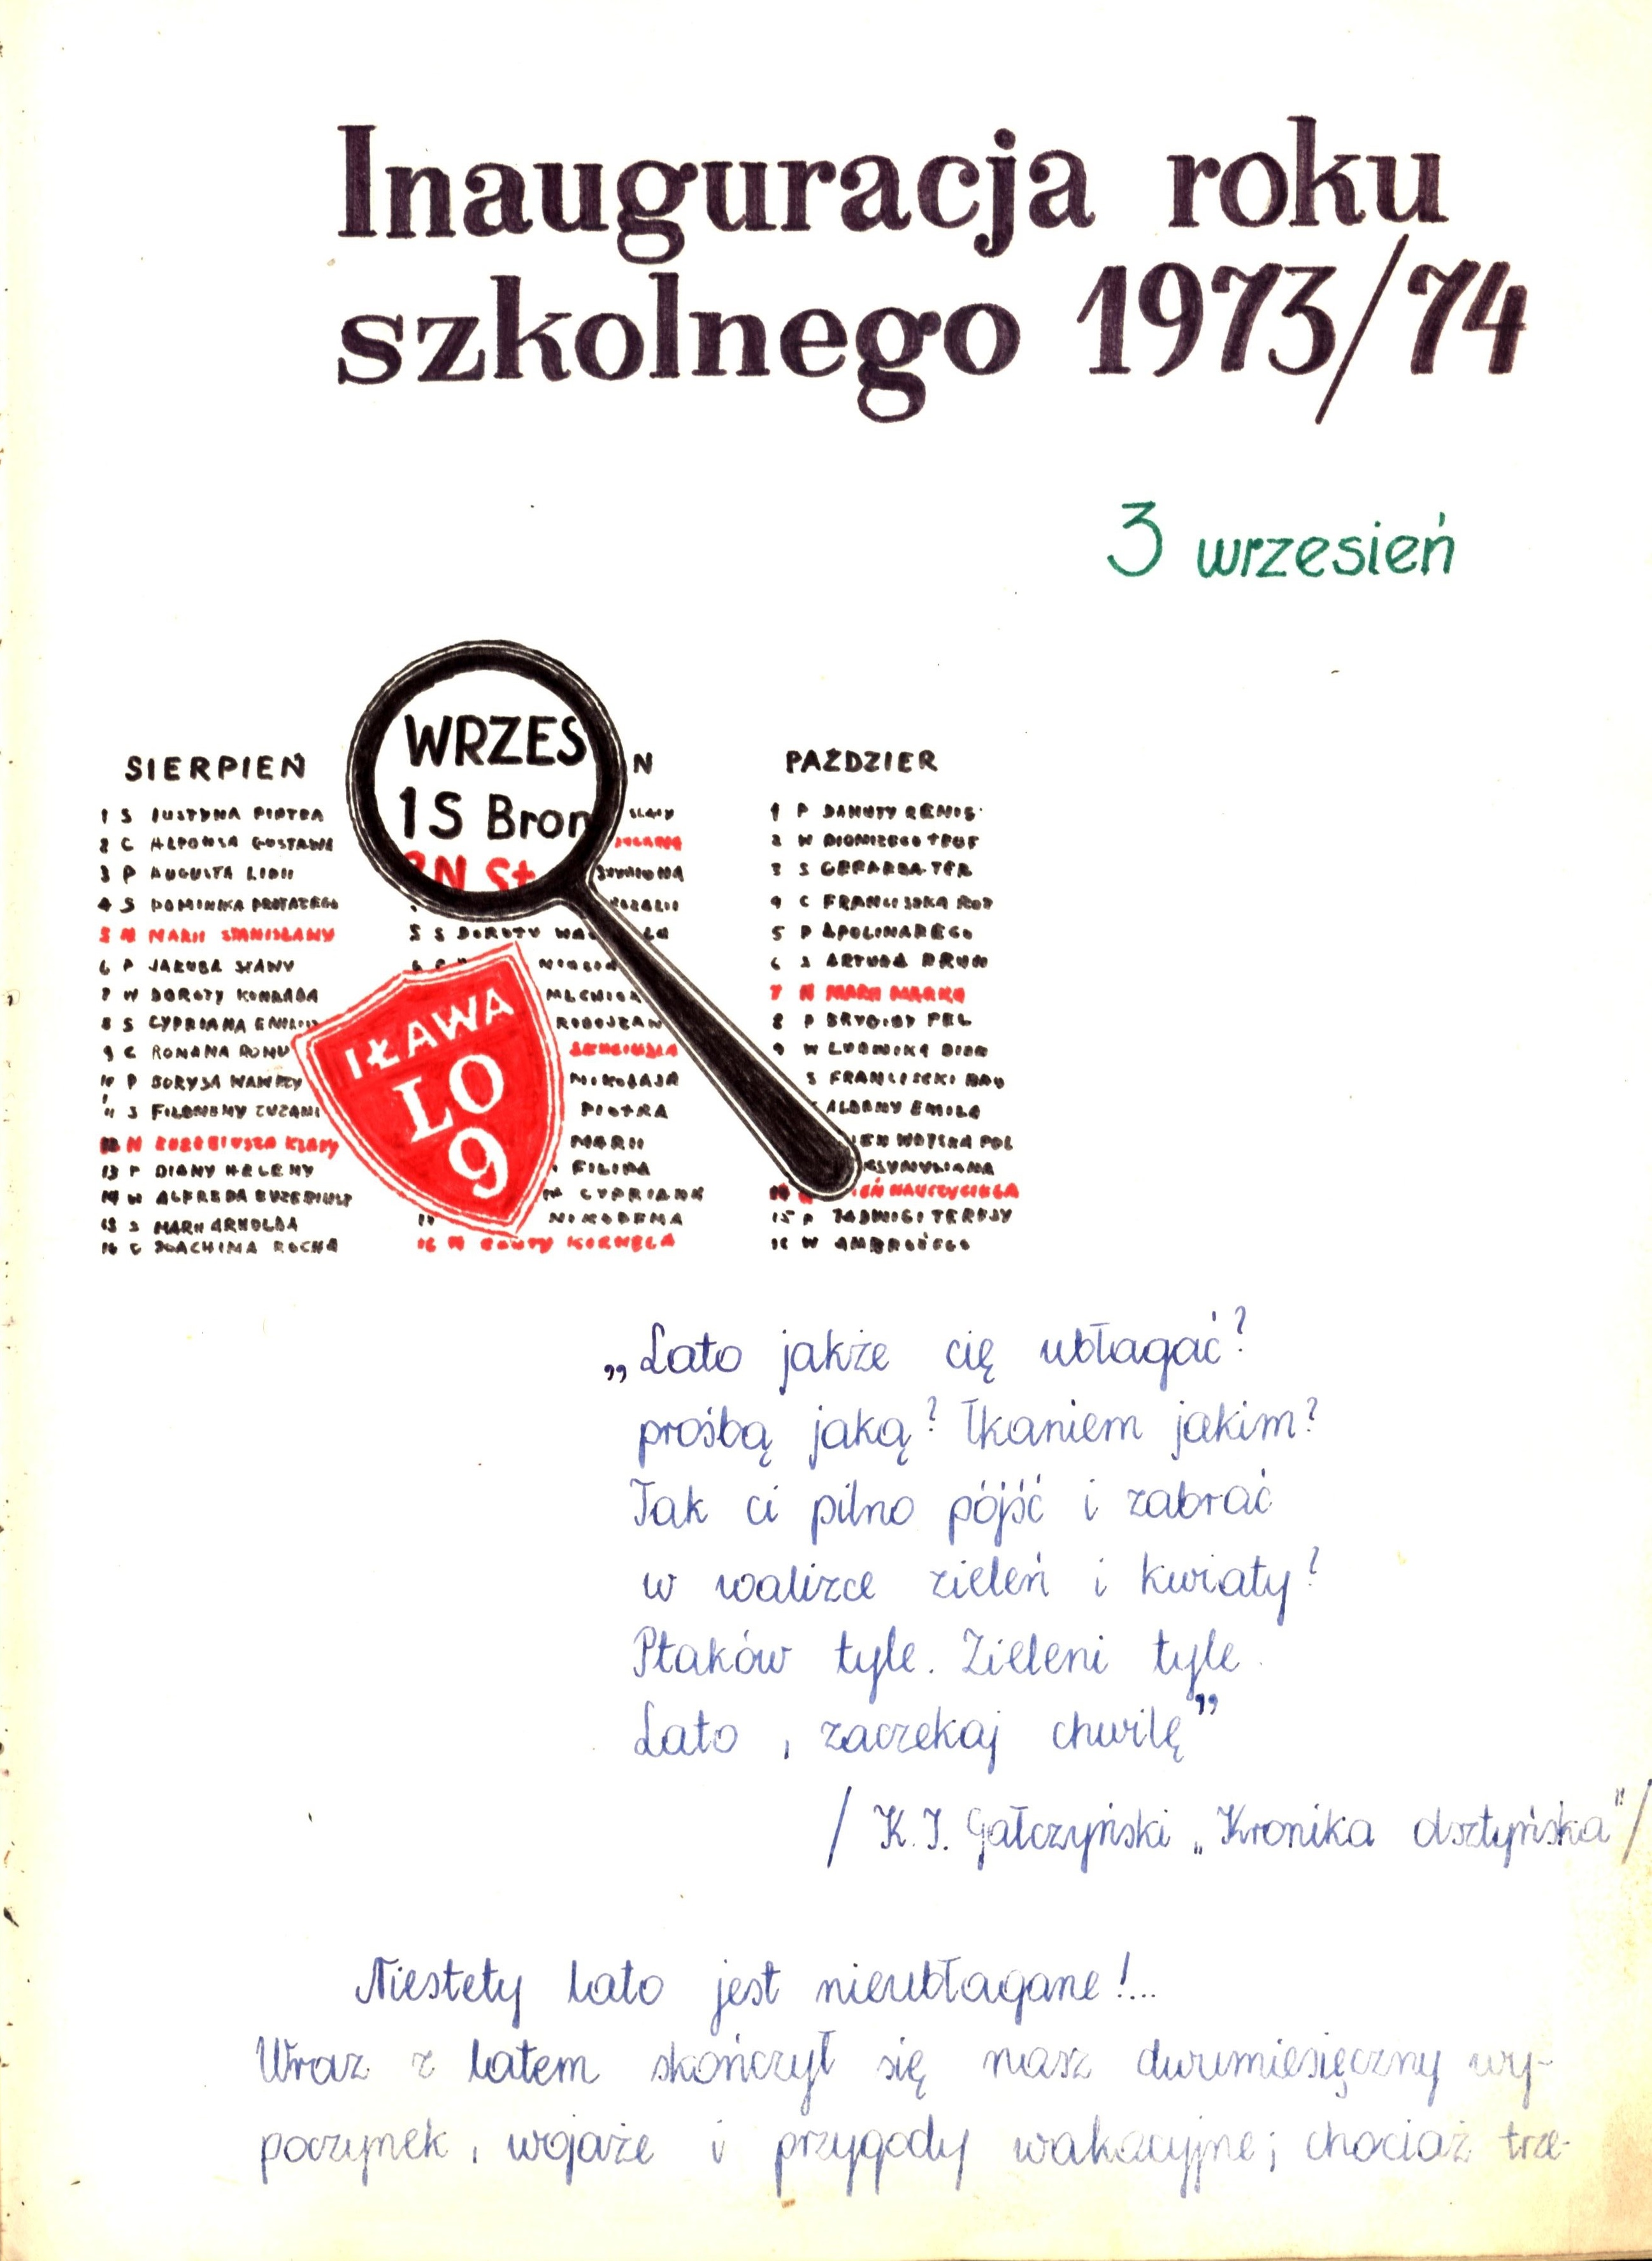 Inauguracja roku
szkolnego 1973/74
3 wrzesień
SIERPIEŃ
1 S JUSTYNA PIOTRA
2 C ALFONSA GUSTAWA
3 P AUGUSTA LIDII
4 S DOMINIKA PROTAZEGO
5 N MARII STANISŁAWY
6 P JAKUBA SŁAWY
7 W DOROTY KONRADA
8 S CYPRIANA EMILII
9 C ROMANA ROMU
10 P BORYSA WAWRZY
11 S FILOMENY ZUZANI
12 N EUZEBIUSZA KLARY
13 P DIANY HELENY
14 W ALFREDA EUZEBIUSZ
15 S MARII ARNOLDA
16 C JOACHIMA ROCHA
WRZES
N
1 S Bron
2N St
SZYMONA
ROZALII
5 S DOROTY
MELCHIOR
SERGIUSZA
MIKOŁAJA
PIOTRA
MARII
FILIPA
CYPRIANA
NIKODEMA
16 N EDYTY KORNELA
IŁAWA
LO
9
PAŹDZIER
1 P DANUTY REMIG
2 W DIONIZEGO TEOF
3 S GERARDA TER
4 C FRANCISZKA ROZ
5 P APOLINAREGO
6 S ARTURA BRUN
7 N MARII MARKA
8 P BRYGIDY PEL
9 W LUDWIKA DION
S FRANCISZKI
ALDONY EMILA
WOJSKA POL
14 NAUCZYCIELA
15 P JADWIGI TERESY
16 W AMBROŻEGO
„Lato jakże cię ubłagać?
prośbą jaką? łkaniem jakim?
Tak ci pilno pójść i zabrać
w walizce zieleń i kwiaty?
Ptaków tyle. Zieleni tyle.
Lato, zaczekaj chwilę"
/ K. I. Gałczyński „Kronika olsztyńska" /
Niestety lato jest nieubłagane!...
Wraz z latem skończył się nasz dwumiesięczny wy-
poczynek, wojaże i przygody wakacyjne; chociaż trze-